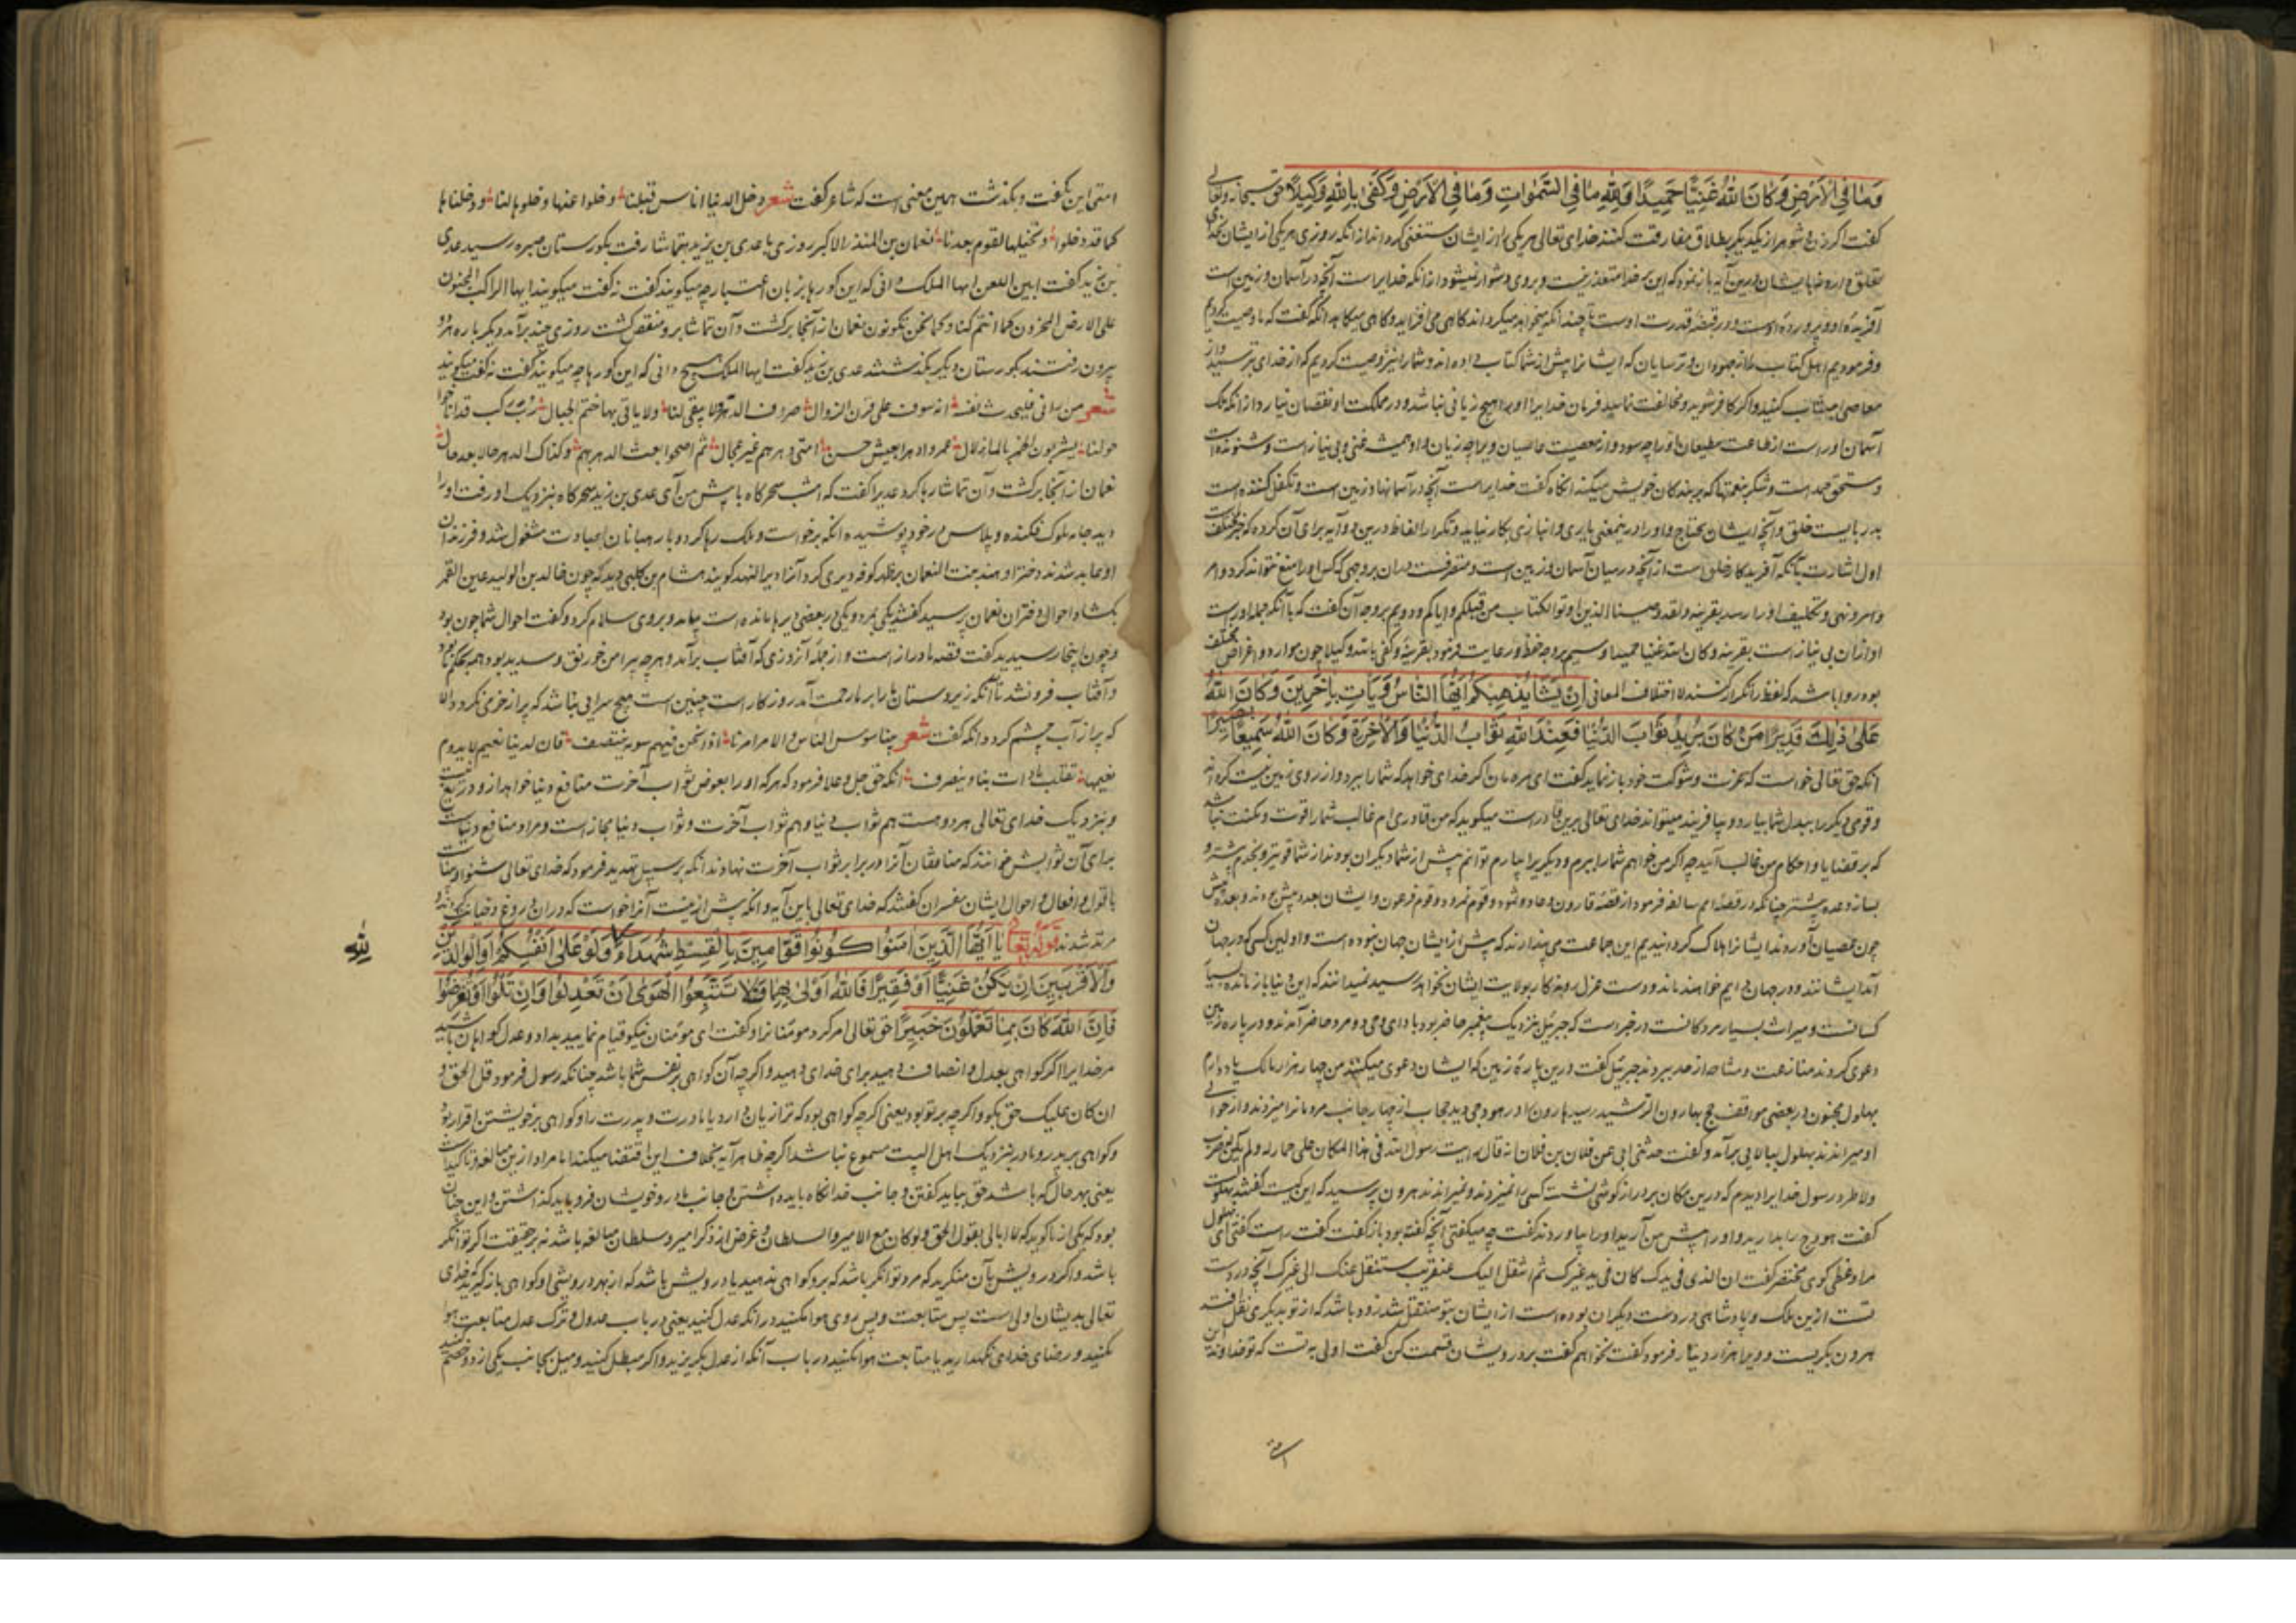 وَمَا فِي الْأَرْضِ وَكَانَ اللَّهُ غَنِيًّا حَمِيدًا وَلِلَّهِ مَا فِي السَّمٰوَاتِ وَمَا فِي الْأَرْضِ وَكَفَى بِاللَّهِ وَكِيلًا حق سبحانه وتعالی
کفت اکر زن و شوهر از یکدیکر بطلاق مفارقت کنند خدای تعالی هر یکی را از ایشان مستغنی کرداند از انکه روزی هر یکی از ایشان
آفریده او و پرورده اوست و در قبضه قدرت اوست
وفرمودیم اهل کتاب را از جهودان و ترسایان که ایشانرا پیش از شما کتاب داده اند و شما را نیز وصیت کردیم که از خدای بترسید و از
معاصی اجتناب کنید و اکر کافر شوید و مخالفت نمایید فرمان خدایرا او را هیچ زیانی نباشد و در مملکت او نقصان نیارد از انکه ملک
آسمان او راست از طاعت مطیعان او را چه سود و از معصیت عاصیان ویرا چه زیان و او همیشه غنی و بی نیاز است و ستوده است
و مستحق حمد است و شکر بنعمتها که بر بندکان خویش میکند انکاه کفت خدایراست آنچه در آسمانها و زمین است و تکفل کننده است
اول اشارت بآنکه آفریدکار خلق است از آنچه در میان آسمان و زمین است و متصرفست در ان بر وجهی که کس او را منع نتواند کرد و امر
وامر و نهی و تکلیف او را رسد بقرینه ولقد وصینا الذین اوتوا الکتاب من قبلکم وایاکم و دویم بر وجه آن کفت که با آنکه جمله او راست
او از ان بی نیاز است بقرینه وکان الله غنیا حمیدا و سیم بر وجه حفظ و رعایت فرمود بقرینه وکفی بالله وکیلا چون موارد و اغراض مختلف
بود روا باشد که لفظ را تکرار کنند لاختلاف المعانی اِنْ يَشَأْ يُذْهِبْكُمْ أَيُّهَا النَّاسُ وَيَأْتِ بِآخَرِينَ وَكَانَ اللَّهُ
عَلَىٰ ذٰلِكَ قَدِيرًا مَنْ كَانَ يُرِيدُ ثَوَابَ الدُّنْيَا فَعِنْدَ اللَّهِ ثَوَابُ الدُّنْيَا وَالْآخِرَةِ وَكَانَ اللَّهُ سَمِيعًا بَصِيرًا
انکه حق تعالی خواست که عزت و شوکت خود باز نماید کفت ای مردمان اکر خدای خواهد که شما را ببرد و از روی زمین نیست کرداند
و قومی دیکر را ببدل شما بیارد و بیافریند میتواند خدای تعالی برین قادرست میکوید که من قادری ام غالب شما را قوت و مکنت نباشد
که بر قضایا و احکام من غالب آیید چه اکر من خواهم شما را ببرم و دیکری را بیارم توانم پیش از شما دیکران بودند از شما قویتر و بحرم بیشتر و
چون عصیان آوردند ایشانرا هلاک کردانیدیم این جماعت می پندارند که پیش از ایشان جهان نبوده است و اولین کسی که در جهان
کسانست و میراث بسیار مردکانست در خبر است که جبرئیل بنزدیک پیغمبر حاضر بود با داوی و دو مرد حاضر آمدند و در پاره زمین
دعوی کردند منازعت و مشاحه از حد ببردند جبرئیل کفت درین پاره زمین که ایشان دعوی میکنند من چهار هزار مالک یاد دارم
بهلول مجنون در بعضی مواقف حج بهارون الرشید رسید
او میراندند بهلول ببالایی برآمد و کفت حدثنی ابی عن فلان بن فلان انه قال رایت رسول الله فی هذا المکان علی حمار له ولم یکن ضرب
ولا طرد رسول خدایرا دیدم که درین مکان بر دراز کوشی نشست کسی را نمیزدند و نمیراندند هرون پرسید که این کیست کفتند بهلول
کفت هودج را بدارید و او را پیش من آرید او را بیاوردند کفت چه میکفتی آنچه کفته بود باز کفت کفت راست کفتی ای بهلول
مرا وعظی کوی مختصر کفت ان الذی فی یدک کان فی ید غیرک ثم انتقل الیک عنقریب ستنقل عنک الی غیرک آنچه در دست
تست از این ملک و پادشاهی در دست دیکران بوده است از ایشان بتو منتقل شد زود باشد که از تو بدیکری نقل افتد
هرون بکریست و ویرا هزار دینار فرمود کفت نخواهم کفت بر درویشان قسمت کن کفت اولی به تست که تو خداوند این
امتی
امتی این بکفت و بکذشت همین معنی است که شاعر کفت شعر دخل الدنیا اناس قبلنا رحلوا عنها وخلوها لنا ودخلناها
کما قد دخلوا ونخلیها لقوم بعدنا نعمان بن المنذر الاکبر روزی با عدی بن زید بتماشا رفت بکورستان حیره رسید عدی
بن زید کفت ابیت اللعن ایها الملک دانی که این کورها بزبان اعتبار چه میکویند کفت نه کفت میکویند ایها الراکب المخبون
علی الارض المجدون کما انتم کنا وکما نحن تکونون نعمان از آنجا برکشت و آن تماشا برو منغص کشت روزی چند برآمد دیکر باره هر دو
بیرون رفتند بکورستان دیکر بکذشتند عدی بن زید کفت ایها الملک هیچ دانی که این کورها چه میکویند کفت نه کفت میکویند
شعر من رآنی فلیحدث نفسه انه سوف علی قرن الزوال صروف الدهر لا یبقی لنا ولا یاتی بها ختم الجبال رب رکب قد اناخوا
حولنا یشربون الخمر بالماء الزلال عمروا دهرا بعیش حسن امتی دهرهم غیر عجال ثم اضحوا بعث الدهر بهم وکذاک الدهر حالا بعد حال
نعمان از آنجا برکشت و آن تماشا رها کرد عدی را کفت که امشب سحرکاه با پیش من آی عدی بن زید سحرکاه بنزدیک او رفت او را
دید جامه ملوک فکنده و پلاس در خود پوشیده انکه برخواست و ملک رها کرد و با رهبانان بعبادت مشغول شد و فرزندان
او عابد شدند دختر او هند بنت النعمان بظهر کوفه دیری کرد و آنرا دیر الهند کویند هشام بن کلبی دید که چون خالد بن الولید عین التمر
بکشاد احوال دختران نعمان پرسید کفتند یکی بمرد و یکی در بعضی دیرها مانده است بیامد و بروی سلام کرد و کفت احوال شما چون بود
و چون اینجا رسیدید کفت قصه ما دراز است و از جمله آنروزی که آفتاب برآمد و هرچه پیرامن خورنق و سدیر بود همه بحکم ما بود
و آفتاب فرو نشد تا آنکه زیردستان ما را بر ما رحمت آمد روزکار است چنین است هیچ سرایی نباشد که پر از خرمی نکردد الا
که پر از آب چشم کردد انکه کفت شعر بینا نسوس الناس والامر امرنا اذا نحن فیهم سوقة نتنصف فاف لدنیا نعیم لا یدوم
نعیمها تقلب تارات بنا وتصرف انکه حق جل و علا فرمود که هر که او را بعوض ثواب آخرت منافع دنیا خواهد
و بنزدیک خدای تعالی هر دو هست هم ثواب دنیا و هم ثواب آخرت و ثواب دنیا مجاز است و مراد منافع دنیاست
برای آن ثوابش خوانند که منافقان آنرا در برابر ثواب آخرت نهادند انکه بر سبیل تهدید فرمود که خدای تعالی شنوا و بیناست
باقوال و افعال و احوال ایشان مفسران کفتند که خدای تعالی باین آیه و انکه پیش ازینست آنرا خواست که در ان دروغ و خیانت کردند
مرتد شدند قوله تعالی يَا أَيُّهَا الَّذِينَ آمَنُوا كُونُوا قَوَّامِينَ بِالْقِسْطِ شُهَدَاءَ وَلَوْ عَلَىٰ أَنْفُسِكُمْ أَوِ الْوَالِدَيْنِ
لِلَّهِ
وَالْأَقْرَبِينَ إِنْ يَكُنْ غَنِيًّا أَوْ فَقِيرًا فَاللَّهُ أَوْلَىٰ بِهِمَا فَلَا تَتَّبِعُوا الْهَوَىٰ أَنْ تَعْدِلُوا وَإِنْ تَلْوُوا أَوْ تُعْرِضُوا
فَإِنَّ اللَّهَ كَانَ بِمَا تَعْمَلُونَ خَبِيرًا حق تعالی امر کرد مومنانرا و کفت ای مؤمنان نیکو قیام نمایید بداد و عدل کواهان باشید
مر خدایرا اکر کواهی بعدل و انصاف دهید برای خدای دهید و اکرچه آن کواهی بر نفس شما باشد چنانکه رسول فرمود قل الحق و
ان کان علیک حق بکو و اکرچه بر تو بود یعنی اکرچه کواهی بود که ترا زیان دارد یا مادرت و پدرت را و کواهی بر خویشتن اقرار بود
و کواهی بر پدر و مادر بنزدیک اهل البیت مسموع نباشد اکرچه ظاهر آیه بخلاف این اقتضا میکند اما مراد ازین مبالغه و تاکید است
یعنی بهر حال که باشد حق بباید کفتن و جانب خدا نکاه باید داشتن و جانب مادر و خویشان فرو باید کذاشتن و این چنان
بود که یکی از ما کوید که لا ابالی بقول الحق ولو کان مع الامیر والسلطان و غرض از ذکر امیر و سلطان مبالغه باشد نه بر حقیقت اکر توانکر
باشد و اکر درویش بآن منکرید که مرد توانکر باشد که برو کواهی ندهید یا درویش باشد که از بهر درویشی او کواهی باز کیرید خدای
تعالی بدیشان اولی است پس متابعت و پس روی هوا مکنید در انکه عدل کنید یعنی در باب عدول و ترک عدل متابعت هوا
مکنید و رضای خدای نکهدارید یا متابعت هوا مکنید در باب آنکه از عدل بکریزید و اکر مطل کنید و میل بجانب یکی از دو خصم کنید